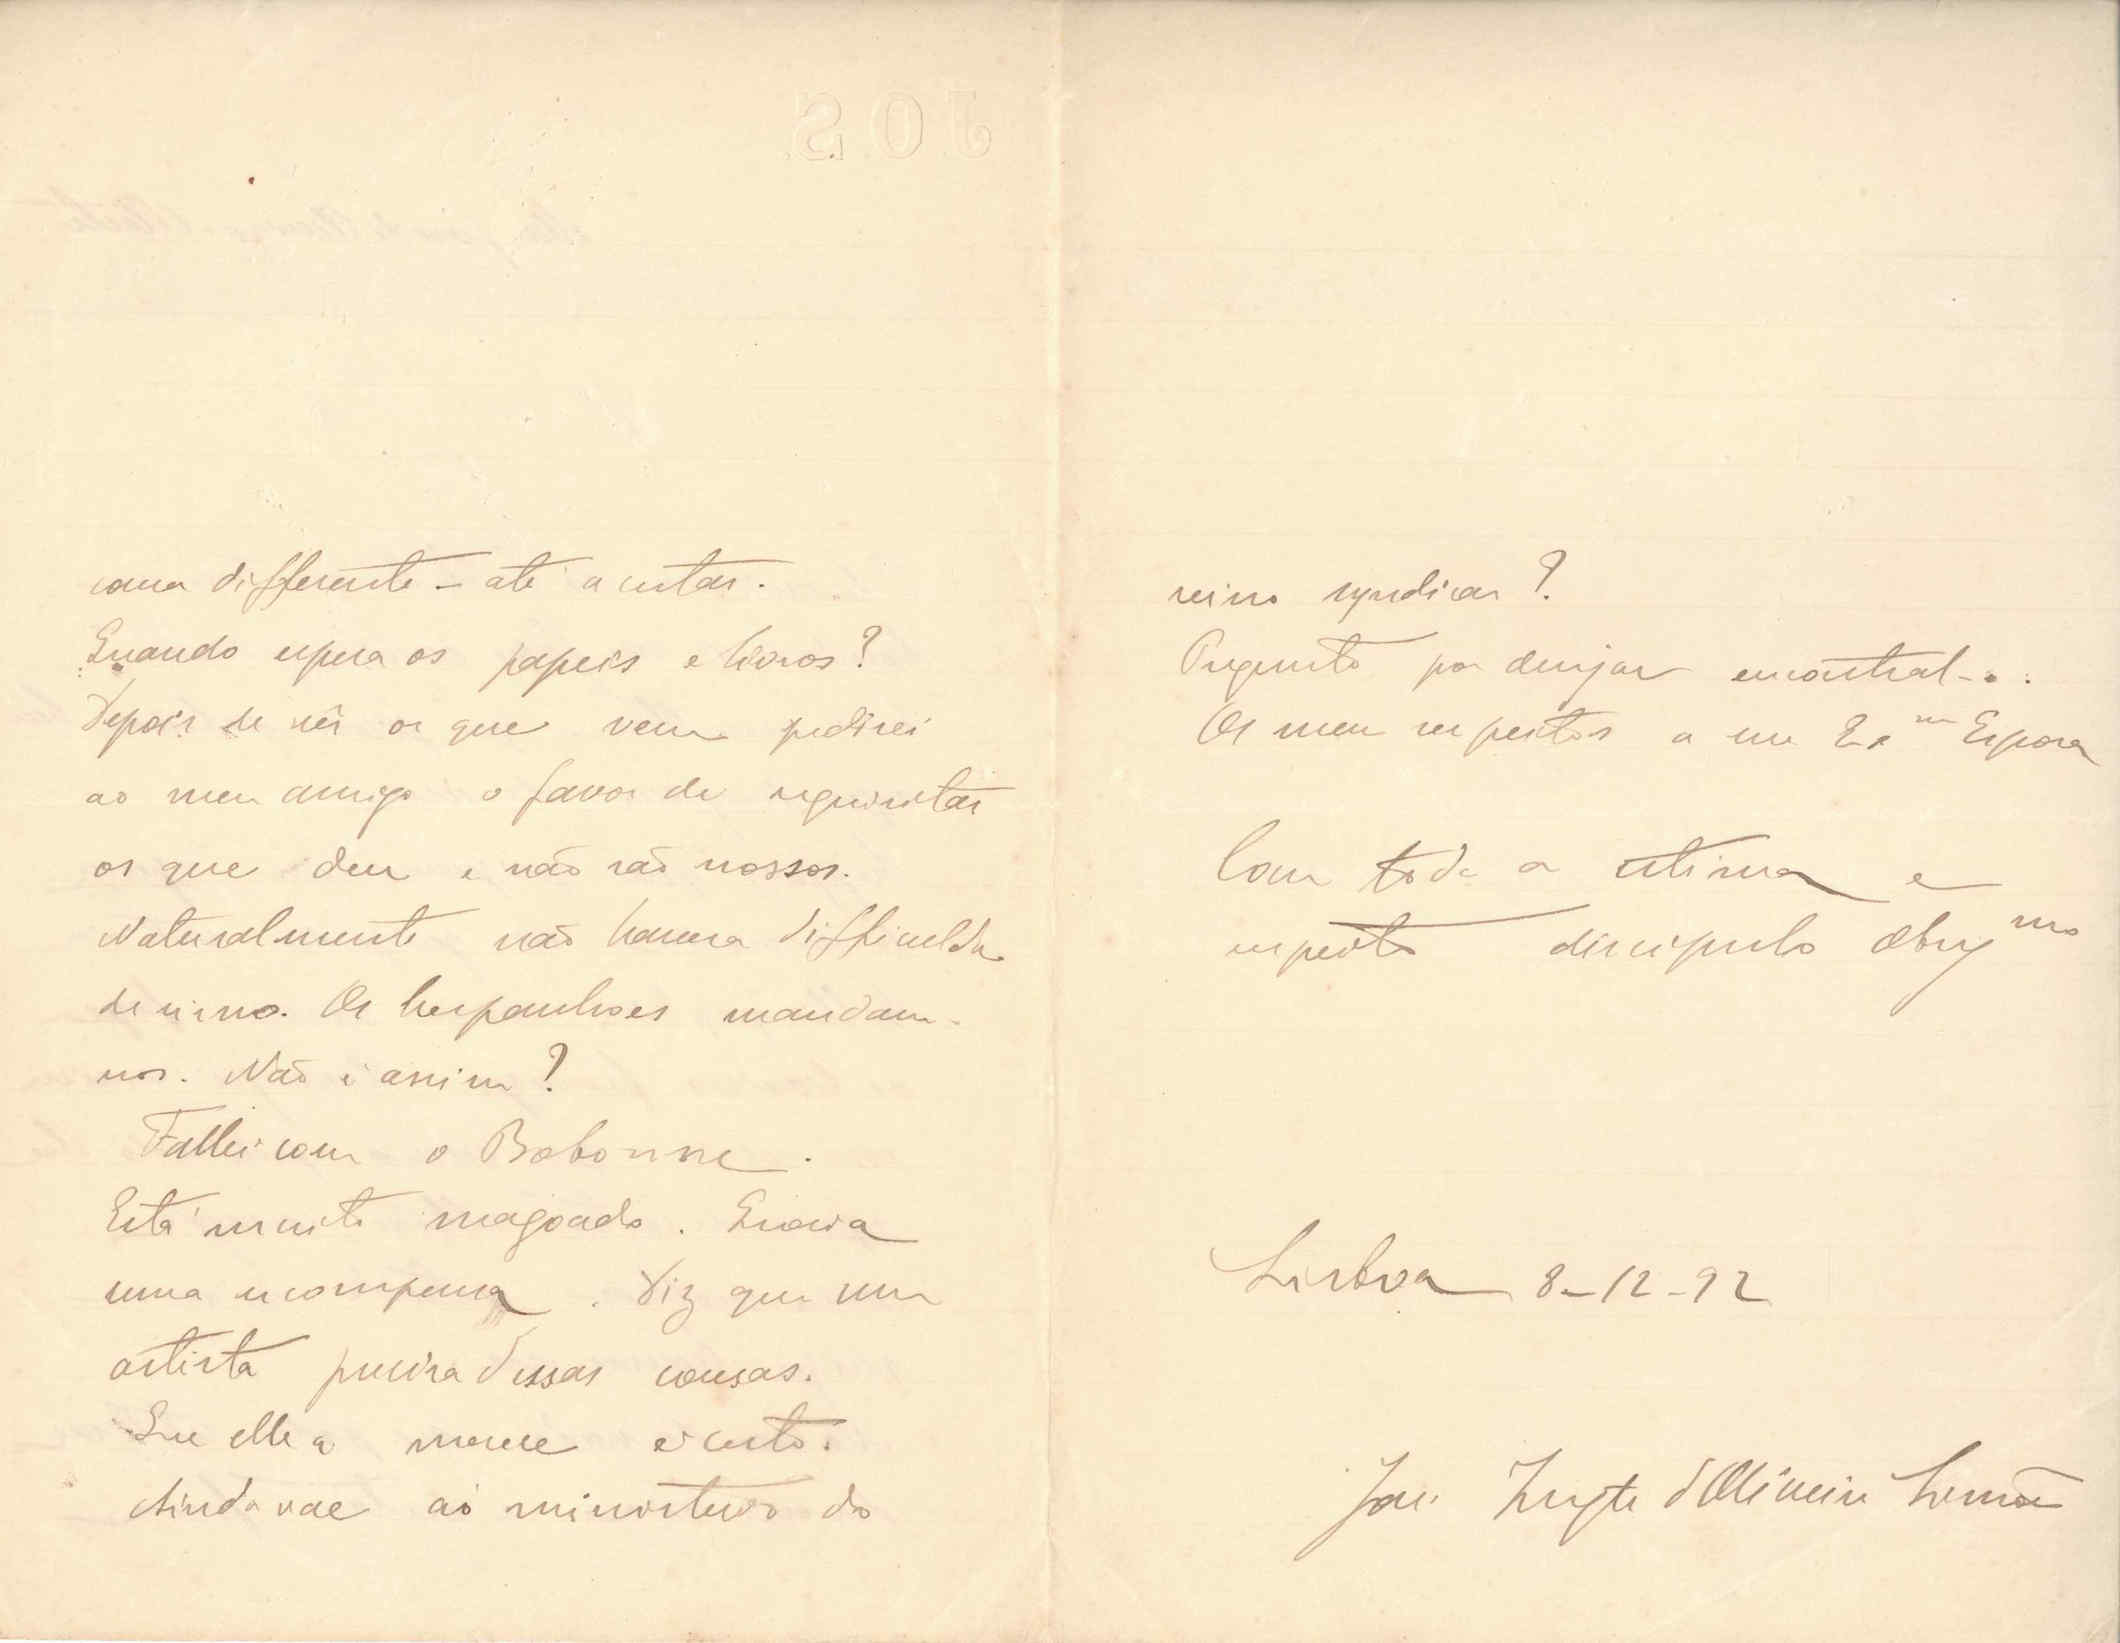 J.O.S.
cousa differente – até a cartas.
Quando espera os papeis e livros?
Depois de vêr os que vem pedirei
ao meu amigo o favor de requisitar
os que deu e não são nossos.
Naturalmente não haverá difficulda
de nisso. Os hespanhoes mandam-
nos. Não é assim?
Fallei com o Bobonne.
Está muito magoado. Queria
uma recompensa. Diz que um
artista precisa dessas cousas.
Que elle a merece é certo.
Ainda vae ao ministerio do
reino syndicar?
Pergunto por desejar encontral-o.
Os meus respeitos a sua Exma Esposa
Com toda a estima e
respeito discipulo Obrgmo
Lisboa 8-12-92
José d'Oliveira